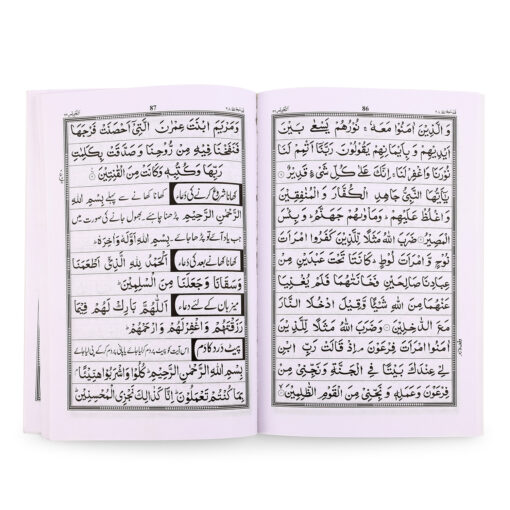 86
وَالَّذِيْنَ اٰمَنُوْا مَعَهٗ ۚ نُوْرُهُمْ يَسْعٰى بَيْنَ
اَيْدِيْهِمْ وَبِاَيْمَانِهِمْ يَقُوْلُوْنَ رَبَّنَآ اَتْمِمْ لَنَا
نُوْرَنَا وَاغْفِرْلَنَا ۚ اِنَّكَ عَلٰى كُلِّ شَىْءٍ قَدِيْرٌ ۝
يٰٓاَيُّهَا النَّبِىُّ جَاهِدِ الْكُفَّارَ وَالْمُنٰفِقِيْنَ
وَاغْلُظْ عَلَيْهِمْ ۚ وَمَاْوٰىهُمْ جَهَنَّمُ ۚ وَبِئْسَ
الْمَصِيْرُ ۝ ضَرَبَ اللّٰهُ مَثَلًا لِّلَّذِيْنَ كَفَرُوا امْرَاَتَ
نُوْحٍ وَّامْرَاَتَ لُوْطٍ ۚ كَانَتَا تَحْتَ عَبْدَيْنِ مِنْ
عِبَادِنَا صَالِحَيْنِ فَخَانَتٰهُمَا فَلَمْ يُغْنِيَا
عَنْهُمَا مِنَ اللّٰهِ شَيْـًٔا وَّقِيْلَ ادْخُلَا النَّارَ
مَعَ الدّٰخِلِيْنَ ۝ وَضَرَبَ اللّٰهُ مَثَلًا لِّلَّذِيْنَ
اٰمَنُوا امْرَاَتَ فِرْعَوْنَ ۘ اِذْ قَالَتْ رَبِّ ابْنِ
لِىْ عِنْدَكَ بَيْتًا فِى الْجَنَّةِ وَنَجِّنِىْ مِنْ
فِرْعَوْنَ وَعَمَلِهٖ وَنَجِّنِىْ مِنَ الْقَوْمِ الظّٰلِمِيْنَ ۝
87
وَمَرْيَمَ ابْنَتَ عِمْرٰنَ الَّتِىْٓ اَحْصَنَتْ فَرْجَهَا
فَنَفَخْنَا فِيْهِ مِنْ رُّوْحِنَا وَصَدَّقَتْ بِكَلِمٰتِ
رَبِّهَا وَكُتُبِهٖ وَكَانَتْ مِنَ الْقٰنِتِيْنَ ۝
کھانا شروع کرنے کی دعاء کھانا کھانے سے پہلے بِسْمِ اللّٰهِ
الرَّحْمٰنِ الرَّحِيْمِ پڑھنا چاہئے۔ بھول جانے کی صورت میں
جب یاد آئے تو پڑھا جائے۔ بِسْمِ اللّٰهِ اَوَّلَهٗ وَاٰخِرَهٗ
کھانا کھانے کے بعد کی دعاء اَلْحَمْدُ لِلّٰهِ الَّذِىْٓ اَطْعَمَنَا
وَسَقَانَا وَجَعَلَنَا مِنَ الْمُسْلِمِيْنَ
میزبان کے لئے دعاء اَللّٰهُمَّ بَارِكْ لَهُمْ فِيْمَا
رَزَقْتَهُمْ وَاغْفِرْلَهُمْ وَارْحَمْهُمْ
پیٹ درد کا دم اس آیت کو پیٹ پر دم کیا جائے یا پانی پر دم کر کے پی لیا جائے
بِسْمِ اللّٰهِ الرَّحْمٰنِ الرَّحِيْمِ كُلُوْا وَاشْرَبُوْا هَنِيْٓـًٔا
بِمَا كُنْتُمْ تَعْمَلُوْنَ ۝ اِنَّا كَذٰلِكَ نَجْزِى الْمُحْسِنِيْنَ